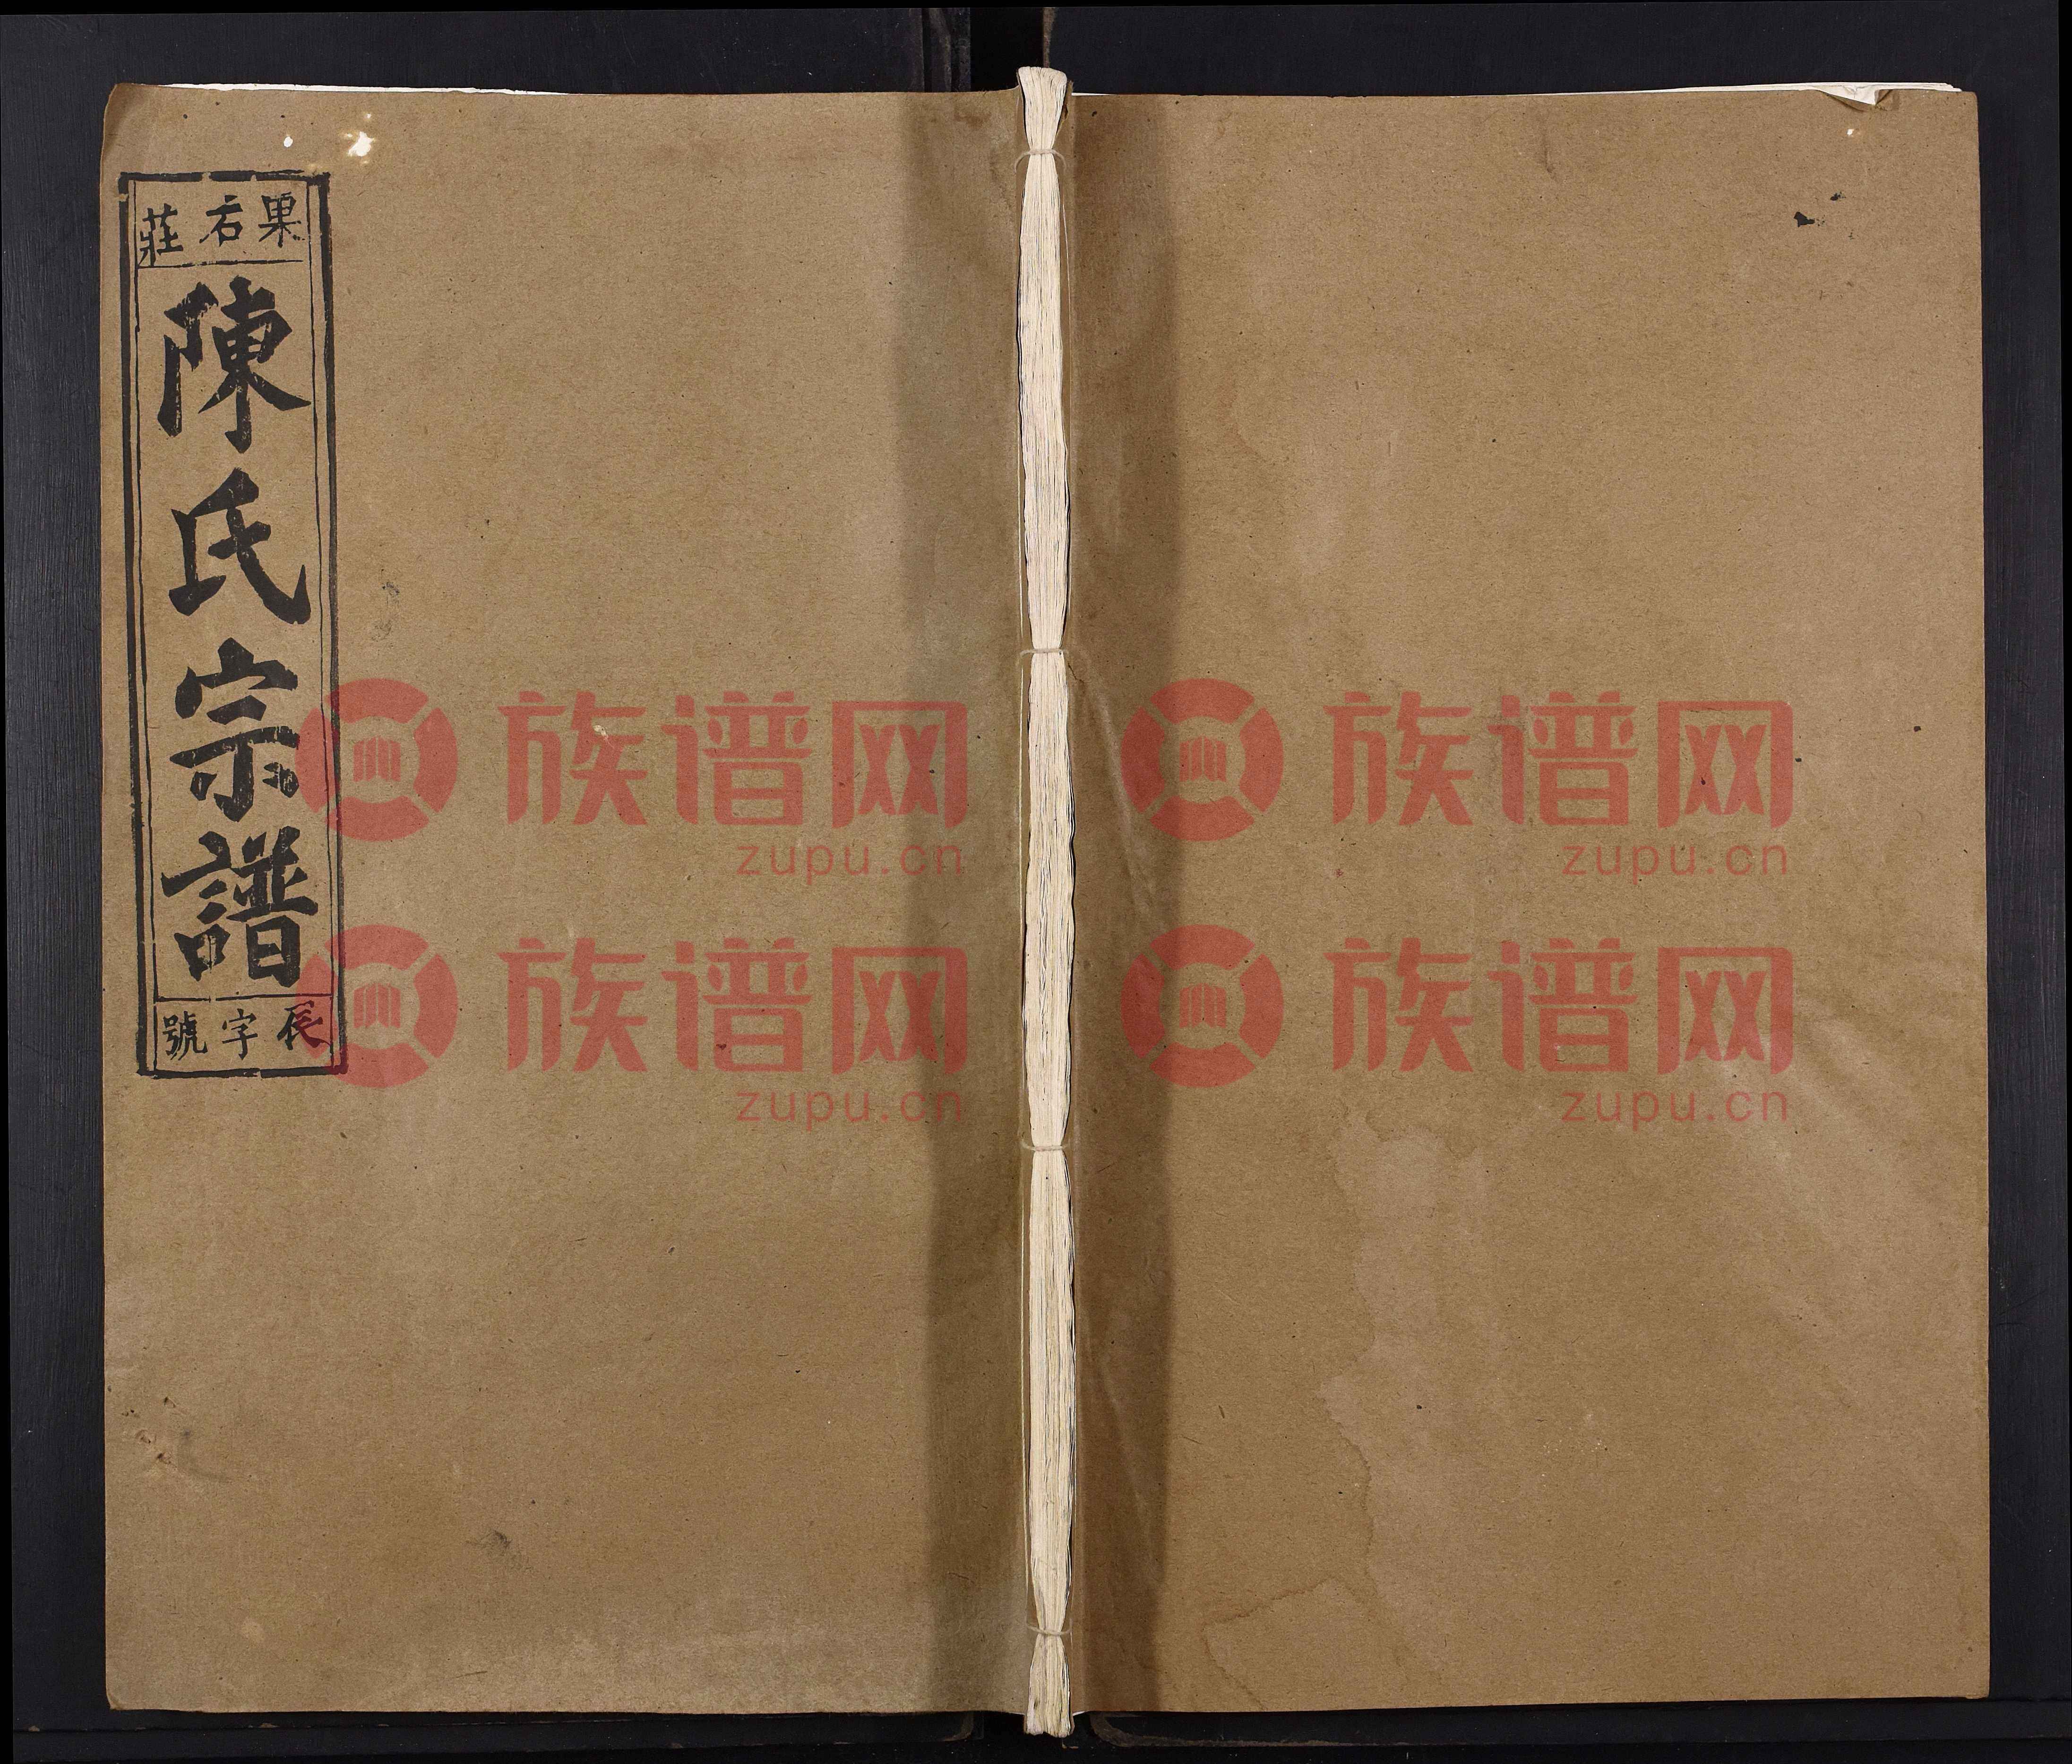 果石莊
陳氏宗譜
辰字號
族谱网
zupu.cn
族谱网
zupu.cn
族谱网
zupu.cn
族谱网
zupu.cn